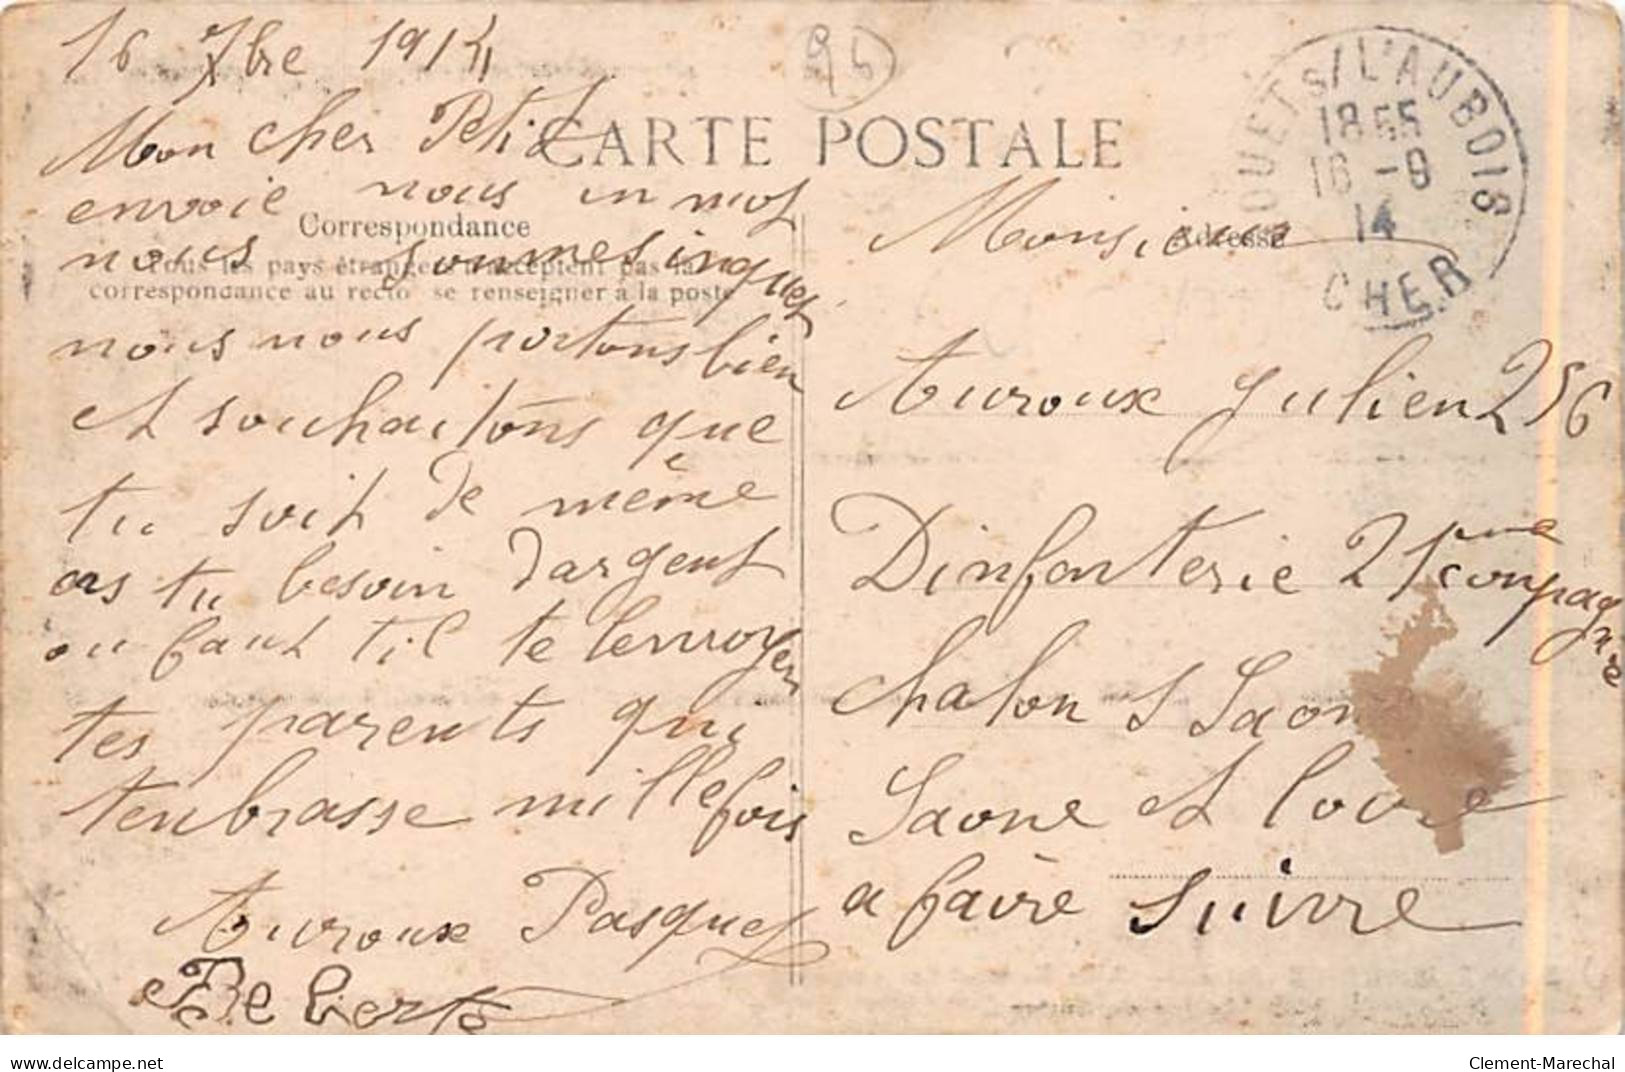 16 7bre 1914
Mon cher Petit
envoie nous un mot
nous sommes inquiet
nous nous portons bien
et souhaitons que
tu soit de même
as tu besoin dargent
ou faut til te lenvoyer
tes parents qui
tenbrasse mille fois
Auroux Pasquet
95
CARTE POSTALE
Correspondance
Tous les pays étrangers n'acceptent pas la
correspondance au recto se renseigner à la poste
Adresse
OUET S/L'AUBOIS
18 55
16 -9
14
CHER
Monsieur
Auroux Julien 256
Dinfanterie 21eme compagnie
chalon S Saone
Saone et loire
a faire suivre
www.delcampe.net
Clement-Marechal